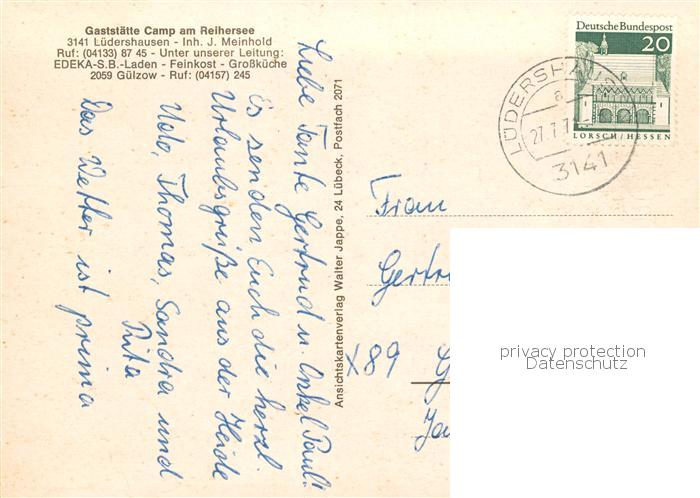 Gaststätte Camp am Reihersee
3141 Lüdershausen - Inh. J. Meinhold
Ruf: (04133) 87 45 - Unter unserer Leitung:
EDEKA-S.B.-Laden - Feinkost - Großküche
2059 Gülzow - Ruf: (04157) 245
Liebe Tante Gertrud u. Onkel Paul!
Es senden Euch die herzl.
Urlaubsgrüße aus der Heide
Udo, Thomas, Sandra und
Rita
Das Wetter ist prima
Ansichtskartenverlag Walter Jappe, 24 Lübeck, Postfach 2071
Deutsche Bundespost
20
LORSCH/HESSEN
3141
Frau
X89
privacy protection
Datenschutz